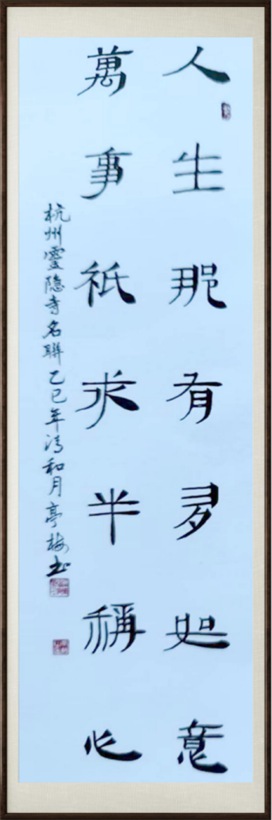 人生那有多如意
萬事祇求半稱心
杭州靈隱寺名聯乙巳年清和月亭梅书